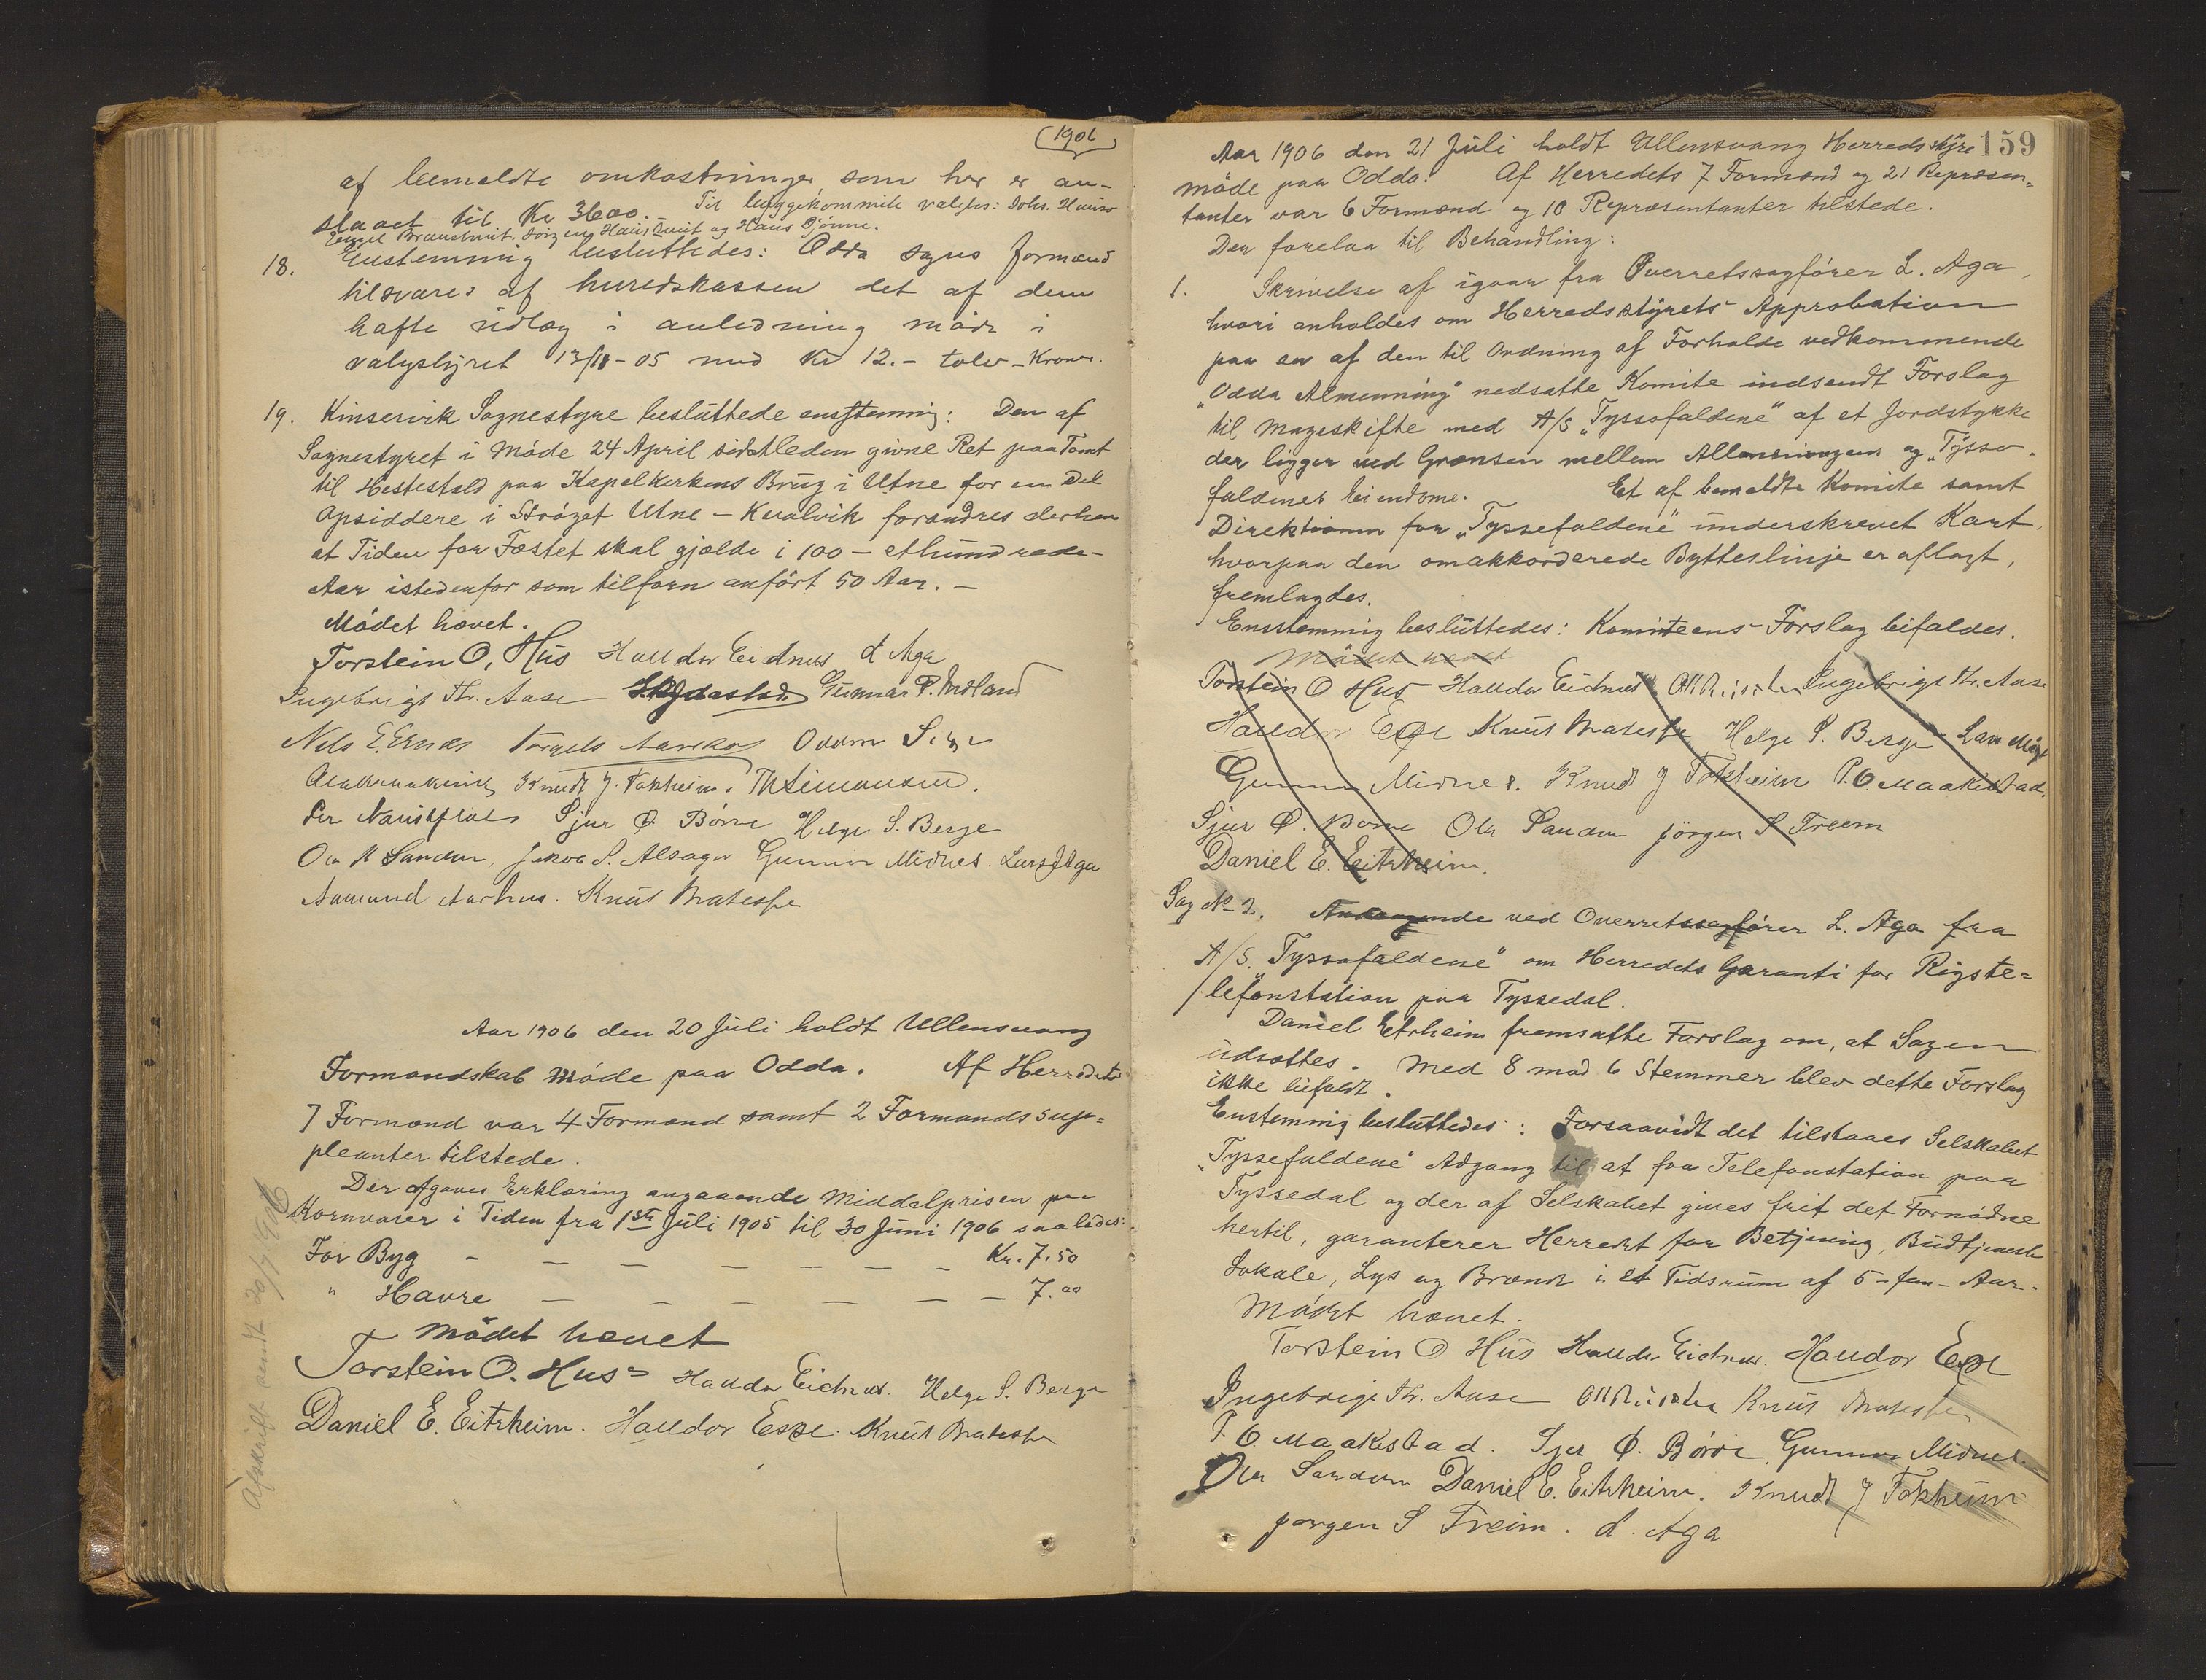 1906
af bemeldte omkostninger som her er an-
slaaet til Kr 3600. Til byggekommite valgtes: Johs. Hauso
Jørgen og Hans Bjønne.
18. Enstemmig besluttedes: Odda sogns formænd
tilsvares af heredskassen det af dem
hafte udlæg i anledning møde i
valgstyret 05 med Kr 12.- tolv - Kroner.
19. Kinservik Sognestyre besluttede enstemmig: Den af
Sognestyret i Møde 24 April sidstleden givne Ret paa Tomt
til Hestestald paa Kapelkirkens Brug i Utne for en Del
Opsiddere i Strøget Utne - Kvalvik forandres derhen
at Tiden for Fæstet skal gjælde i 100 - ethundrede-
Aar istedenfor som tilforn anført 50 Aar. -
Mødet hævet.
Torstein O. Hus Haldor Eidnes L Aga
Ingebrigt Th. Aase Gunnar P. Midland
Nels E. Ernes Torgels Oddm
Knudt J. Tokheim. Th Simonsen.
Per Sjur Ø. Børve Helge S. Berge
Ola K Sandven, Jakob S. Alsager Gunnar Midnes. Lars Aga
Aamund Aarhus. Knut Matespe
Aar 1906 den 20 Juli holdt Ullensvang
Formandskab Møde paa Odda. Af Herredets
7 Formænd var 4 Formænd samt 2 Formandssup=
pleanter tilstede.
Der afgaves Erklæring angaaende Middelprisen paa
Kornvarer i Tiden fra 1ste Juli 1905 til 30 Juni 1906 saaledes:
For Byg - - - - - - - Kr. 7.50
" Havre - - - - - - 7.00
Mødet hævet
Torstein O. Hus Haldor Eidnes. Helge S. Berge
Daniel E. Eitrheim. Haldor Espe. Knut Matespe
Afskrift sendt 20/7 906
159
Aar 1906 den 21 Juli holdt Ullensvang Herredsstyre
møde paa Odda. Af Herredets 7 Formænd og 21 Repræsen=
tanter var 6 Formænd og 10 Repræsentanter tilstede.
Der forelaa til Behandling:
1. Skrivelse af igaar fra Overretssagfører L. Aga,
hvori anholdes om Herredsstyrets Approbation
paa en af den til Ordning af Forholde vedkommende
"Odda Almenning" nedsatte Komite indsendt Forslag
til Mageskifte med A/S "Tyssefaldene" af et Jordstykke
der ligger ved Grænsen mellem Allmenningens og "Tysse-
faldenes Eiendome. Et af bemeldte Komite samt
Direktionen for "Tyssefaldene" underskrevet Kart,
hvorpaa den omakkorderede Bytteslinje er aflagt,
fremlagdes.
Ensstemmig besluttedes: Komiteens Forslag bifaldes.
Mødet hævet
Torstein O Hus Haldor Eidnes Ingebrigt Th. Aase
Haldor Espe Knut Matespe Helge S. Berge Lars
Gunnar Midnes. Knudt J Tokheim P. O. Maakestad.
Sjur Ø. Børve Ola Sandven Jørgen S Freim
Daniel E. Eitrheim.
Sag No 2. Andragende ved Overretssagfører L. Aga fra
A/S. "Tyssefaldene" om Herredets Garanti for Rigste=
lefonstation paa Tyssedal.
Daniel Eitrheim fremsatte Forslag om, at Sagen
udsættes. Med 8 mod 6 Stemmer blev dette Forslag
ikke bifaldt.
Enstemmig besluttedes: Forsaavidt det tilstaaes Selskabet
"Tyssefaldene" Adgang til at faa Telefonstation paa
Tyssedal og der af Selskabet gives frit det Fornødne
hertil, garanterer Herredet for Betjening, Budtjeneste
Lokale, Lys og Brænde i et Tidsrum af 5 - fem - Aar.
Mødet hævet.
Torstein O Hus Haldor Eidnes. Haldor Espe
Ingebrigt Th. Aase Knut Matespe
P. O. Maakestad. Sjur Ø. Børve. Gunnar Midnes.
Ola Sandven Daniel E. Eitrheim. Knudt J Tokheim
Jørgen S Freim. L. Aga